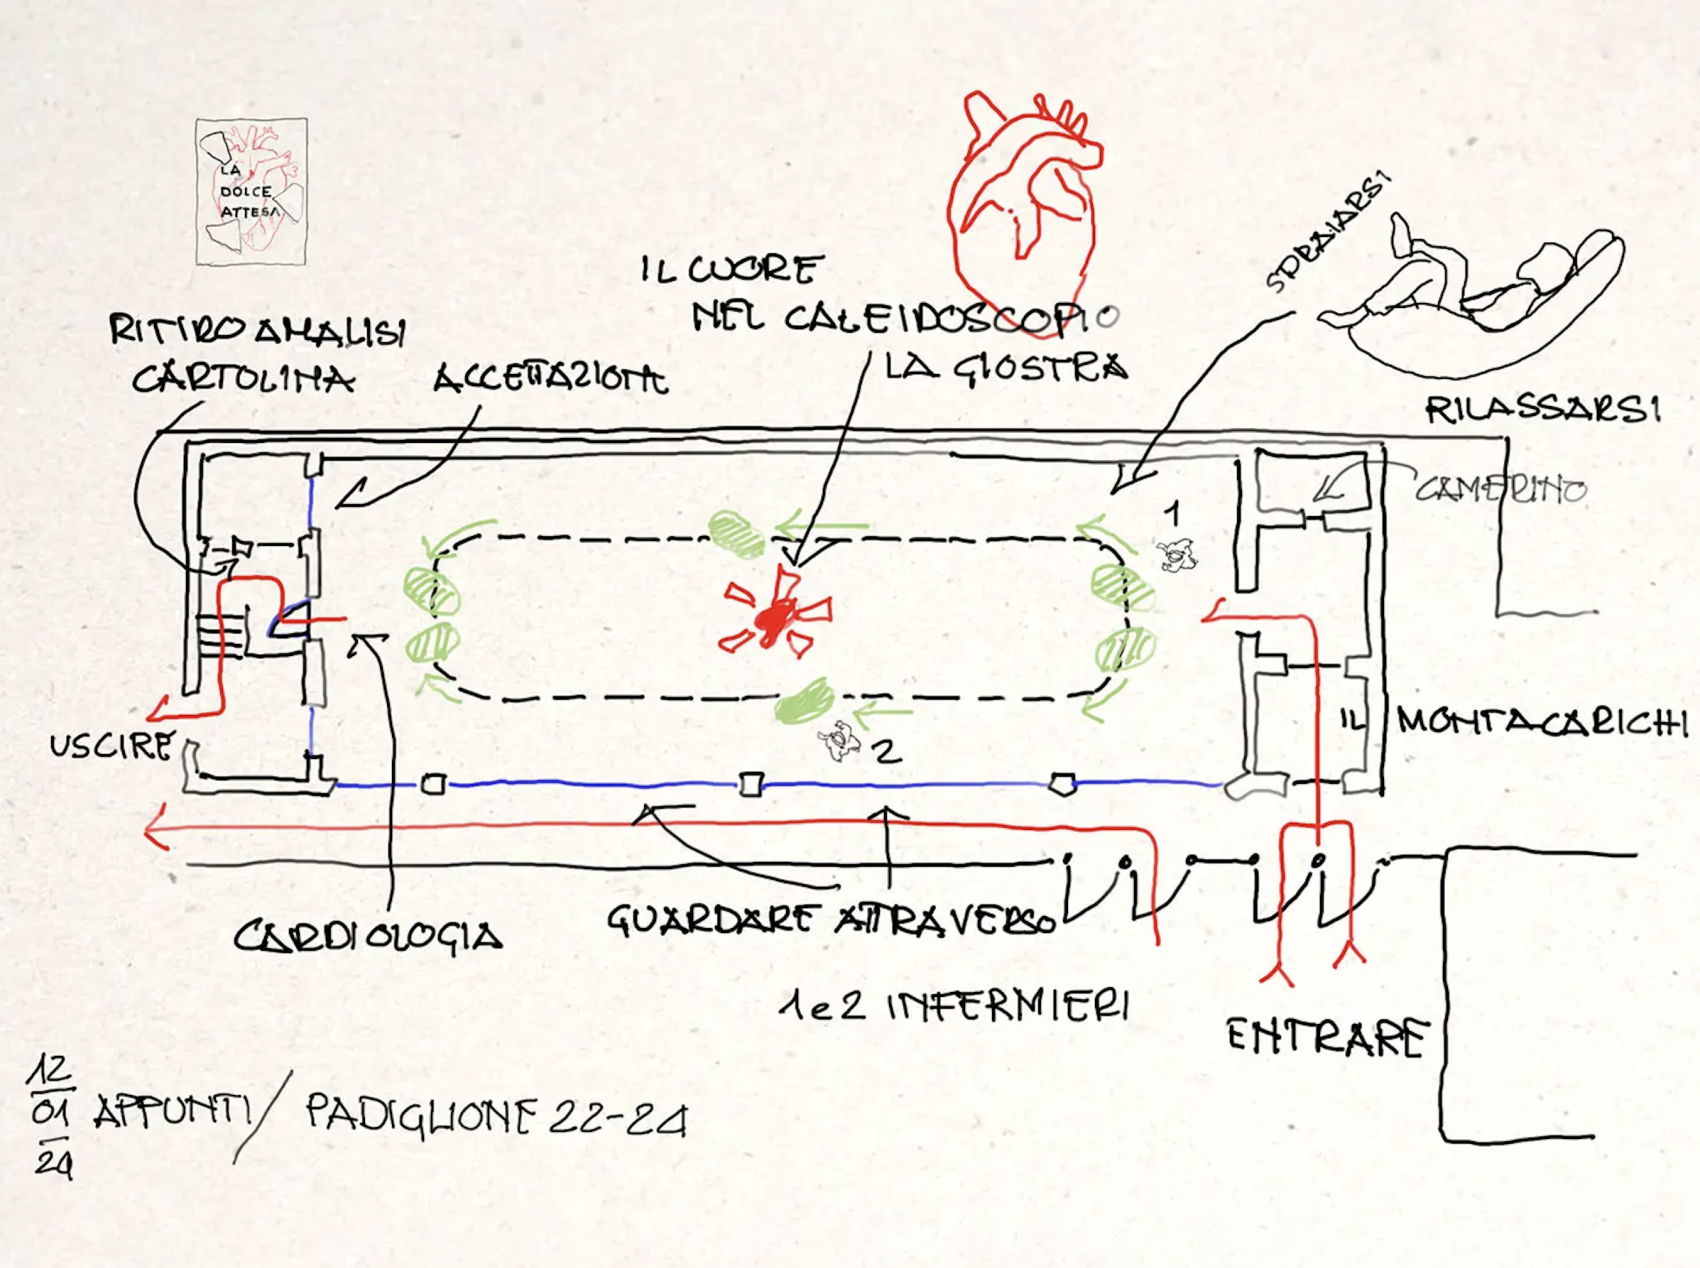 LA
DOLCE
ATTESA
IL CUORE
NEL CALEIDOSCOPIO
LA GIOSTRA
SDRAIARSI
RILASSARSI
RITIRO ANALISI
CARTOLINA
ACCETTAZIONE
CAMERINO
1
USCIRE
IL MONTACARICHI
2
CARDIOLOGIA
GUARDARE ATTRAVERSO
1 e 2 INFERMIERI
ENTRARE
12
01
24
APPUNTI / PADIGLIONE 22-24